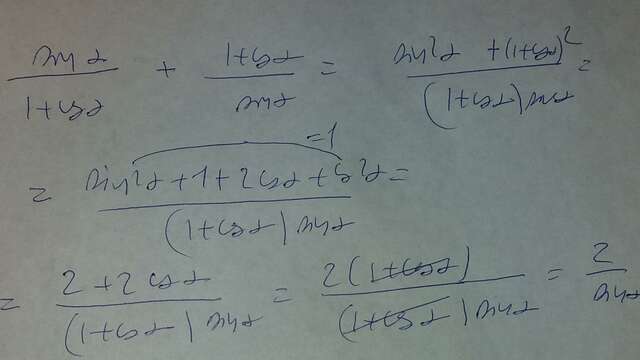 sin α / (1+cos α) + (1+cos α) / sin α = (sin²α + (1+cos α)²) / ((1+cos α) sin α) =
=1
= (sin²α + 1 + 2cos α + cos²α) / ((1+cos α) sin α) =
= (2 + 2cos α) / ((1+cos α) sin α) = 2(1+cos α) / ((1+cos α) sin α) = 2 / sin α